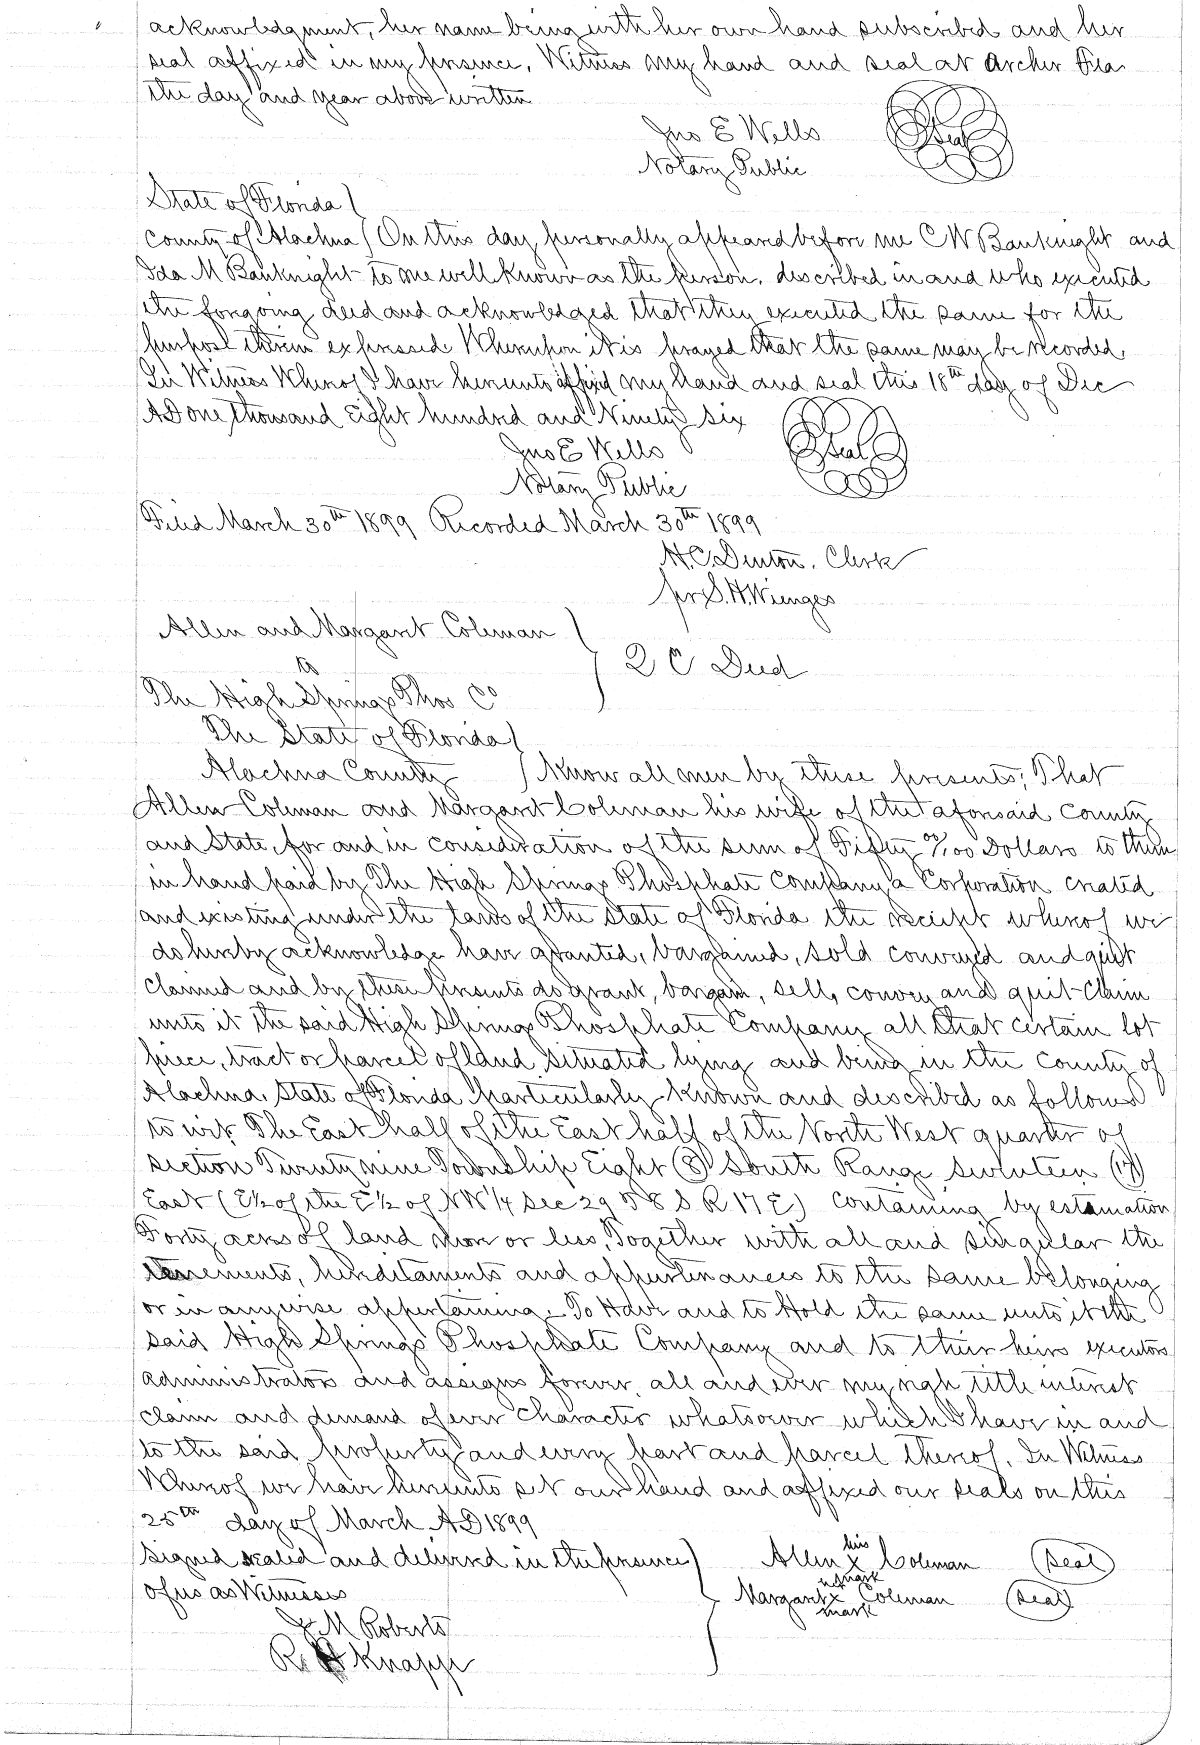 acknowledgment, her name being with her own hand subscribed and her
seal affixed in my presence. Witness my hand and seal at Archer Fla
the day and year above written
Jno E Wells
Seal
Notary Public
State of Florida
County of Alachua On this day personally appeared before me C W Bauknight and
Ida M Bauknight to me well known as the person. described in and who executed
the forgoing deed and acknowledged that they executed the same for the
purpose therein expressed Whereupon it is prayed that the same may be recorded.
In Witness Whereof I have hereunto affixed my hand and seal this 18th day of Dec
AD one thousand Eight hundred and Ninety six
Jno E Wells
Seal
Notary Public
Filed March 30th 1899 Recorded March 30th 1899
H. C. Denton. Clerk
pr S. H. Wienges
Allen and Margaret Coleman
to
2 C Deed
The High Springs Phos Co
The State of Florida
Alachua County Know all men by these presents; That
Allen Coleman and Margaret Coleman his wife of the aforesaid County
and State, for and in consideration of the sum of Fifty 00/100 Dollars to them
in hand paid by The High Springs Phosphate Company a Corporation created
and existing under the laws of the State of Florida the receipt whereof we
do hereby acknowledge have granted, bargained, sold conveyed and quit
claimed and by these presents do grant, bargain, sell, convey and quit-claim
unto it the said High Springs Phosphate Company all that certain lot
piece, tract or parcel of land situated lying and being in the County of
Alachua, State of Florida Particularly known and described as follows
to wit. The East half of the East half of the North West quarter of
section Twenty nine Township Eight (8) South Range seventeen (17)
East (E½ of the E½ of NW¼ Sec 29 T 8 S R 17 E) Containing by estamation
Forty acres of land more or less, Together with all and singular the
tenements, hereditaments and appurtenances to the same belonging
or in anywise appertaining. To Have and to Hold the same unto it the
said High Springs Phosphate Company and to their heirs executors
administrators and assigns forever, all and ever my righ title interest
claim and demand of ever Character whatsoever which I have in and
to the said property and every part and parcel thereof. In Witness
Whereof we have hereunto set our hand and affixed our seals on this
25th day of March AD 1899
Signed sealed and delivered in the presence
of us as Witnesses
his
Allen x Coleman Seal
mark
Margaret x Coleman Seal
mark
J M Roberts
R H Knapp